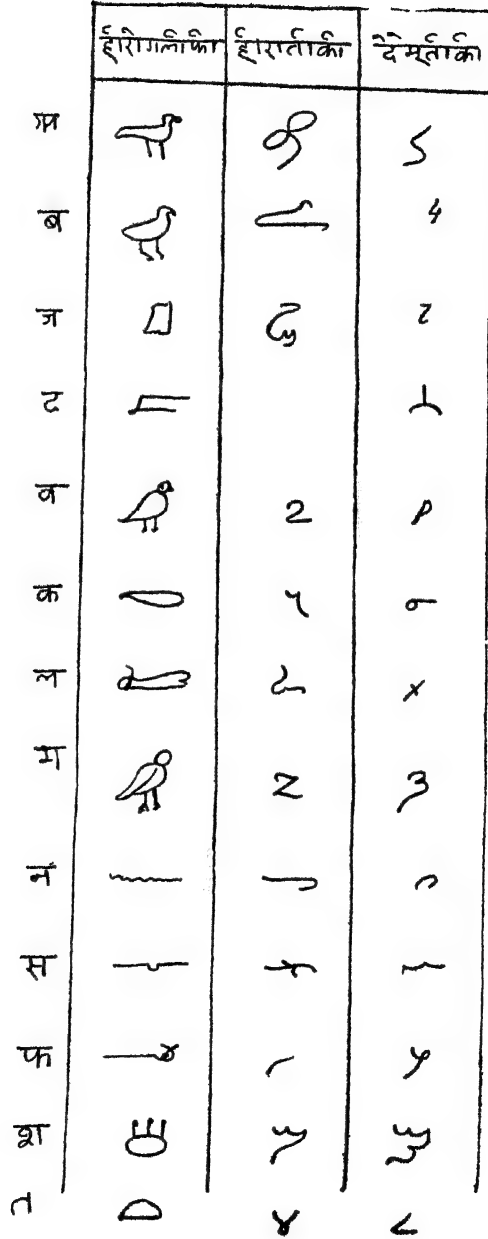 हीरोगलीफी हीरातीकी देमूर्ताकी
ब
ज
ट
व
क
ल
म
न
स
फ
श
त